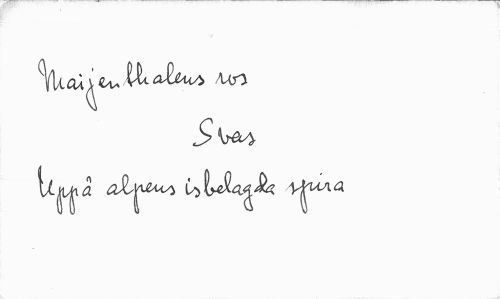 Maijenthalens ros
Svas
Uppå alpens isbelagda spira